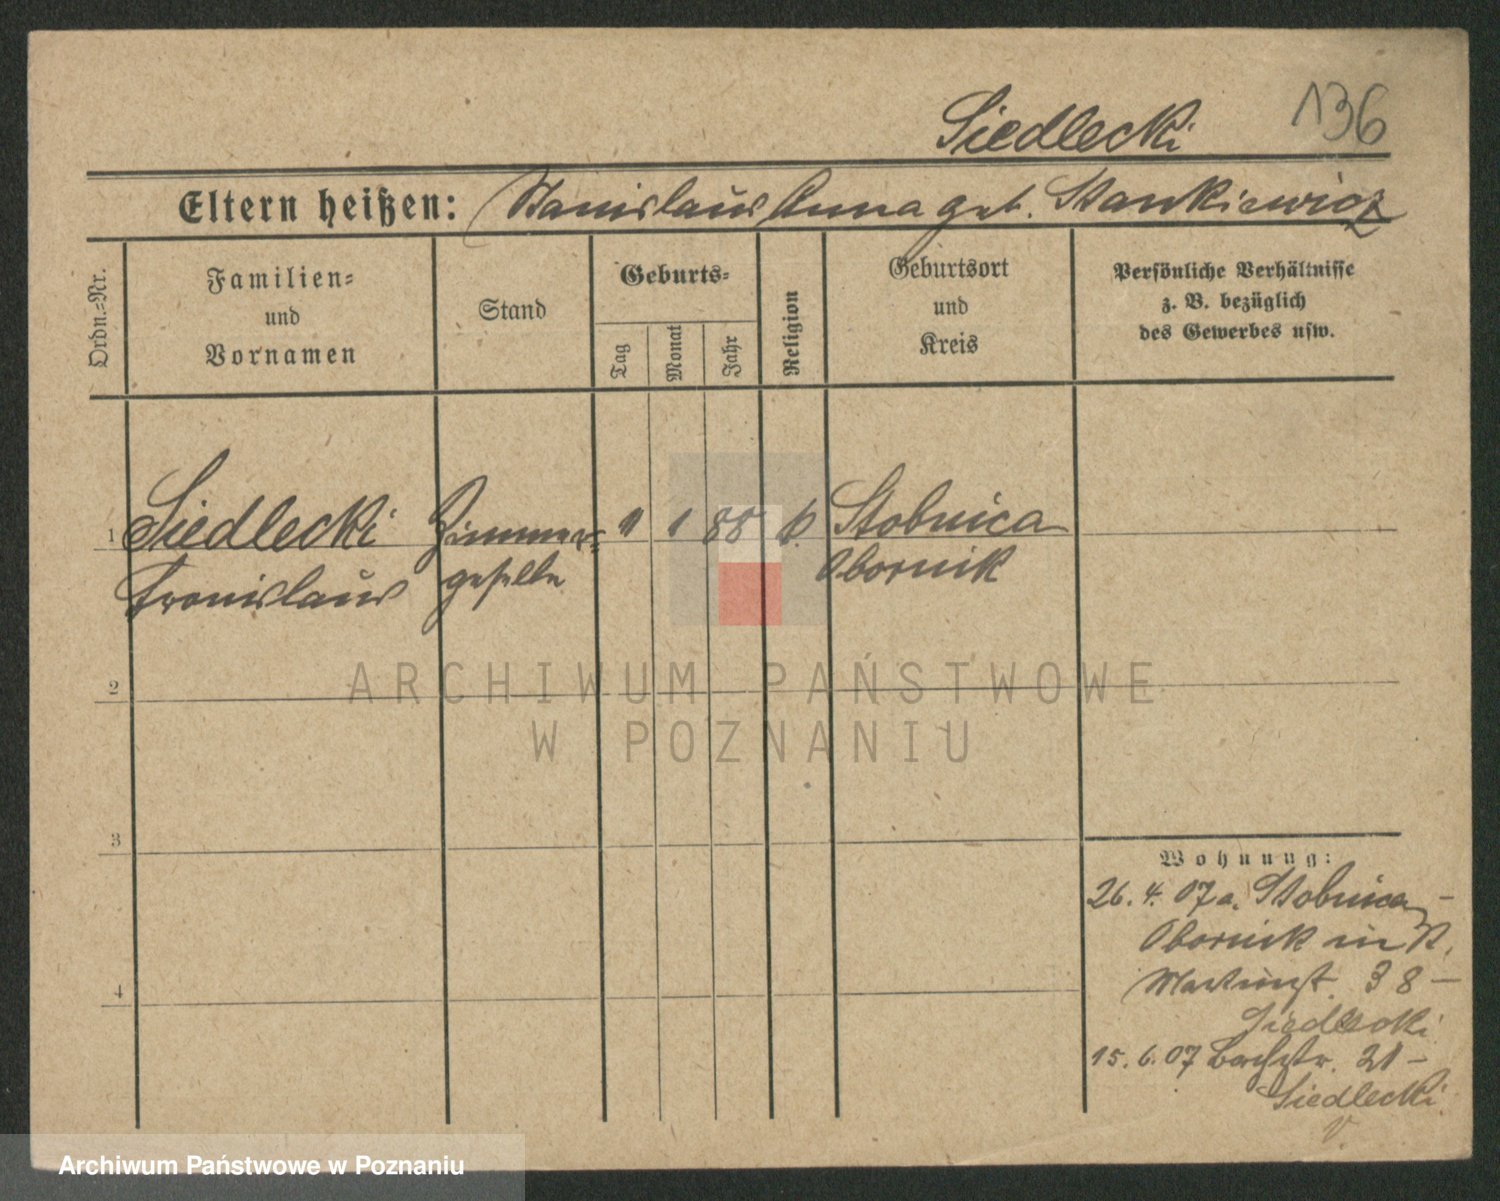 Siedlecki 136
Eltern heißen: Stanislaus Anna geb. Stankiewicz
Ordn.=Nr.
Familien=
und
Vornamen
Stand
Geburts=
Tag
Monat
Jahr
Religion
Geburtsort
und
Kreis
Persönliche Verhältnisse
z. B. bezüglich
des Gewerbes usw.
1 Siedlecki Zimmer= 11 1 88 k. Stobnica
Bronislaus geselle Obornik
2
3
4
Wohnung:
26. 4. 07 a. Stobnica –
Obornik in
Martinst. 38 –
Siedlecki
15. 6. 07 21 –
Siedlecki
V.
ARCHIWUM PAŃSTWOWE
W POZNANIU
Archiwum Państwowe w Poznaniu